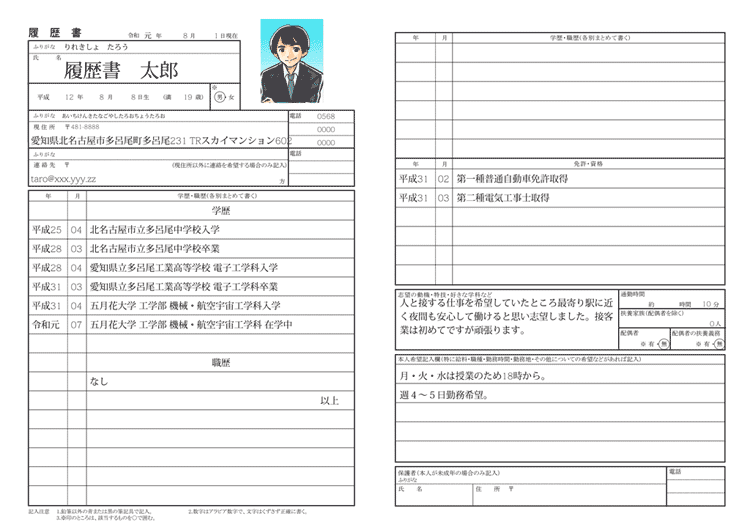 履 歴 書　令和 元 年 8 月 1 日現在
ふりがな りれきしょ たろう
氏 名
履歴書 太郎
平成 12 年 8 月 8 日生 (満 19 歳) ※ 男・女
ふりがな あいちけんきたなごやしたろおちょうたろお
電話 0568
現住所 〒481-8888
0000
愛知県北名古屋市多呂尾町多呂尾231 TRスカイマンション602
0000
ふりがな
電話
連絡先 〒 (現住所以外に連絡を希望する場合のみ記入)
taro@xxx.yyy.zz 方
年 月 学歴・職歴(各別まとめて書く)
学歴
平成25 04 北名古屋市立多呂尾中学校入学
平成28 03 北名古屋市立多呂尾中学校卒業
平成28 04 愛知県立多呂尾工業高等学校 電子工学科入学
平成31 03 愛知県立多呂尾工業高等学校 電子工学科卒業
平成31 04 五月花大学 工学部 機械・航空宇宙工学科入学
令和元 07 五月花大学 工学部 機械・航空宇宙工学科 在学中
職歴
なし
以上
記入注意 1.鉛筆以外の青または黒の筆記具で記入。 2.数字はアラビア数字で、文字はくずさず正確に書く。
3.※印のところは、該当するものを○で囲む。
年 月 学歴・職歴(各別まとめて書く)
年 月 免許・資格
平成31 02 第一種普通自動車免許取得
平成31 03 第二種電気工事士取得
志望の動機・特技・好きな学科など
人と接する仕事を希望していたところ最寄り駅に近
く夜間も安心して働けると思い志望しました。接客
業は初めてですが頑張ります。
通勤時間
約 時間 10 分
扶養家族(配偶者を除く)
0人
配偶者 配偶者の扶養義務
※ 有・無 ※ 有・無
本人希望記入欄(特に給料・職種・勤務時間・勤務地・その他についての希望などがあれば記入)
月・火・水は授業のため18時から。
週4～5日勤務希望。
保護者(本人が未成年の場合のみ記入)
電話
ふりがな
氏 名 住 所 〒